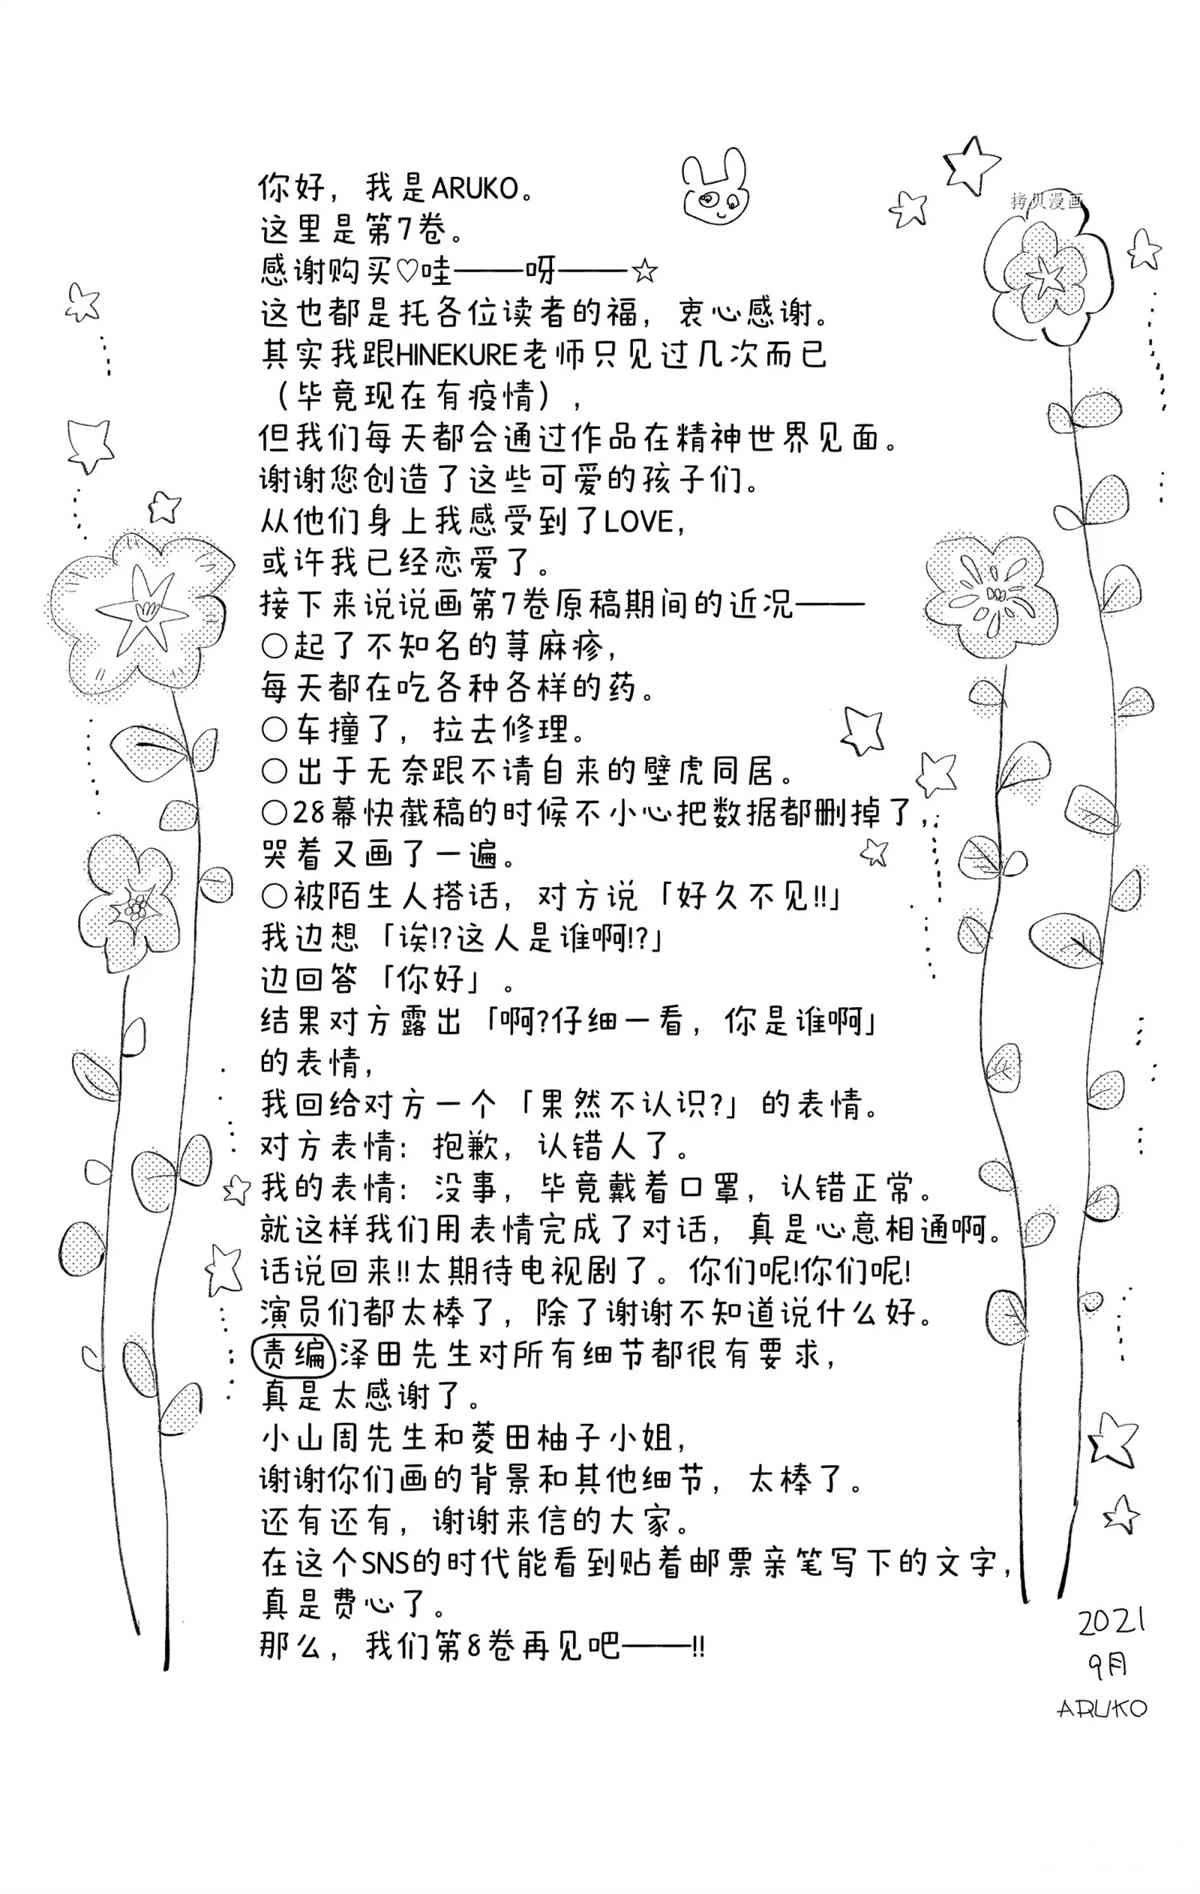 你好，我是ARUKO。
拷贝漫画
这里是第7卷。
感谢购买♡哇——呀——☆
这也都是托各位读者的福，衷心感谢。
其实我跟HINEKURE老师只见过几次而已
（毕竟现在有疫情），
但我们每天都会通过作品在精神世界见面。
谢谢您创造了这些可爱的孩子们。
从他们身上我感受到了LOVE，
或许我已经恋爱了。
接下来说说画第7卷原稿期间的近况——
○起了不知名的荨麻疹，
每天都在吃各种各样的药。
○车撞了，拉去修理。
○出于无奈跟不请自来的壁虎同居。
○28幕快截稿的时候不小心把数据都删掉了，
哭着又画了一遍。
○被陌生人搭话，对方说「好久不见!!」
我边想「诶!?这人是谁啊!?」
边回答「你好」。
结果对方露出「啊?仔细一看，你是谁啊」
的表情，
我回给对方一个「果然不认识?」的表情。
对方表情：抱歉，认错人了。
我的表情：没事，毕竟戴着口罩，认错正常。
就这样我们用表情完成了对话，真是心意相通啊。
话说回来!!太期待电视剧了。你们呢!你们呢!
演员们都太棒了，除了谢谢不知道说什么好。
责编泽田先生对所有细节都很有要求，
真是太感谢了。
小山周先生和菱田柚子小姐，
谢谢你们画的背景和其他细节，太棒了。
还有还有，谢谢来信的大家。
在这个SNS的时代能看到贴着邮票亲笔写下的文字，
真是费心了。
那么，我们第8卷再见吧——!!
2021
9月
ARUKO